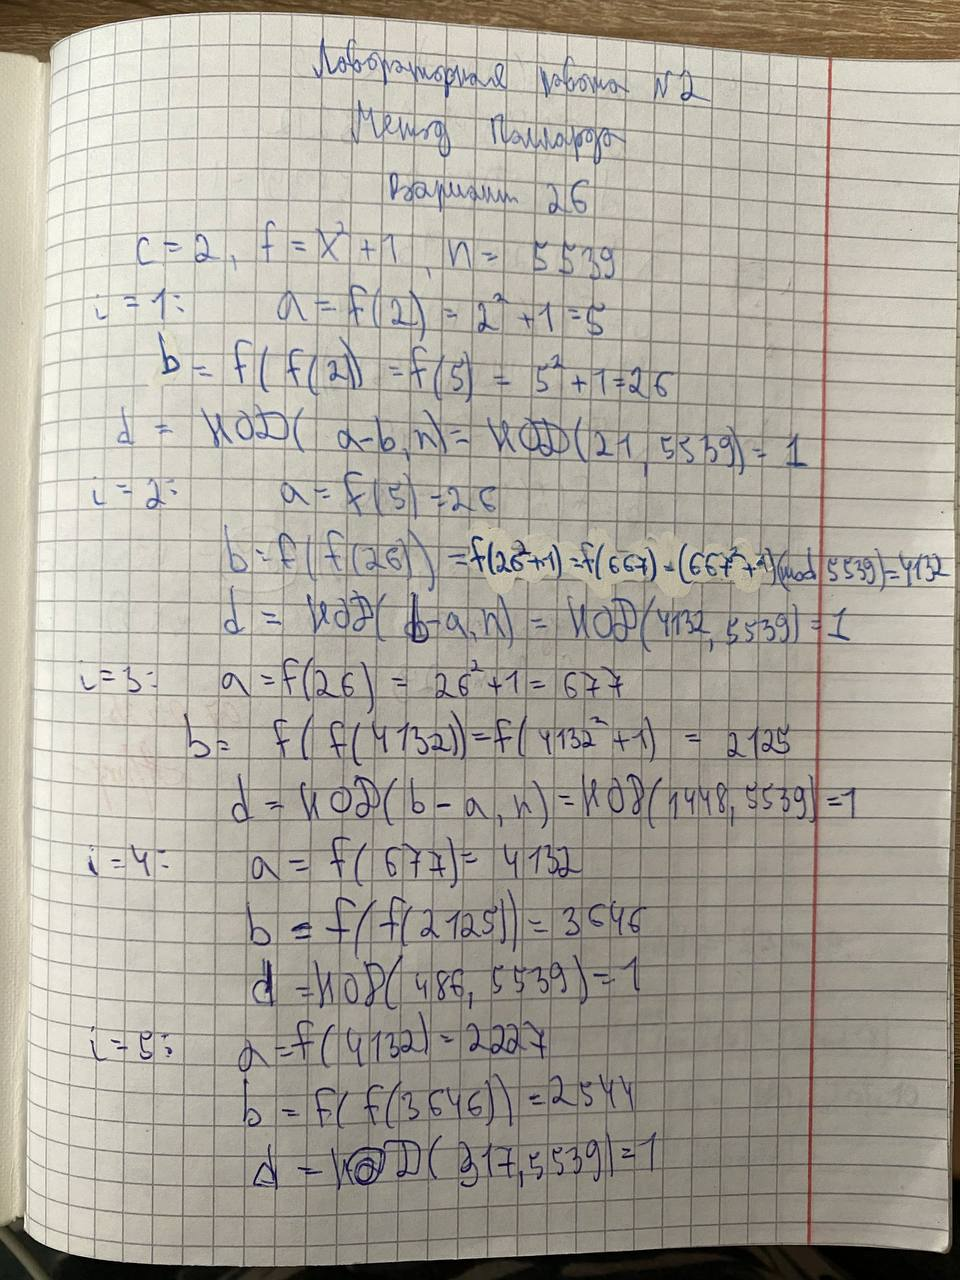 Лабораторная работа №2
Метод Полларда
Вариант 26
c = 2, f = x² + 1, n = 5539
i = 1: a = f(2) = 2² + 1 = 5
b = f(f(2)) = f(5) = 5² + 1 = 26
d = НОД(a-b, n) = НОД(21, 5539) = 1
i = 2: a = f(5) = 26
b = f(f(26)) = f(26²+1) = f(667) = (667²+1)(mod 5539) = 4132
d = НОД(b-a, n) = НОД(4132, 5539) = 1
i = 3: a = f(26) = 26² + 1 = 677
b = f(f(4132)) = f(4132² + 1) = 2125
d = НОД(b - a, n) = НОД(1448, 5539) = 1
i = 4: a = f(677) = 4132
b = f(f(2125)) = 3646
d = НОД(486, 5539) = 1
i = 5: a = f(4132) = 2227
b = f(f(3646)) = 2544
d = НОД(317, 5539) = 1